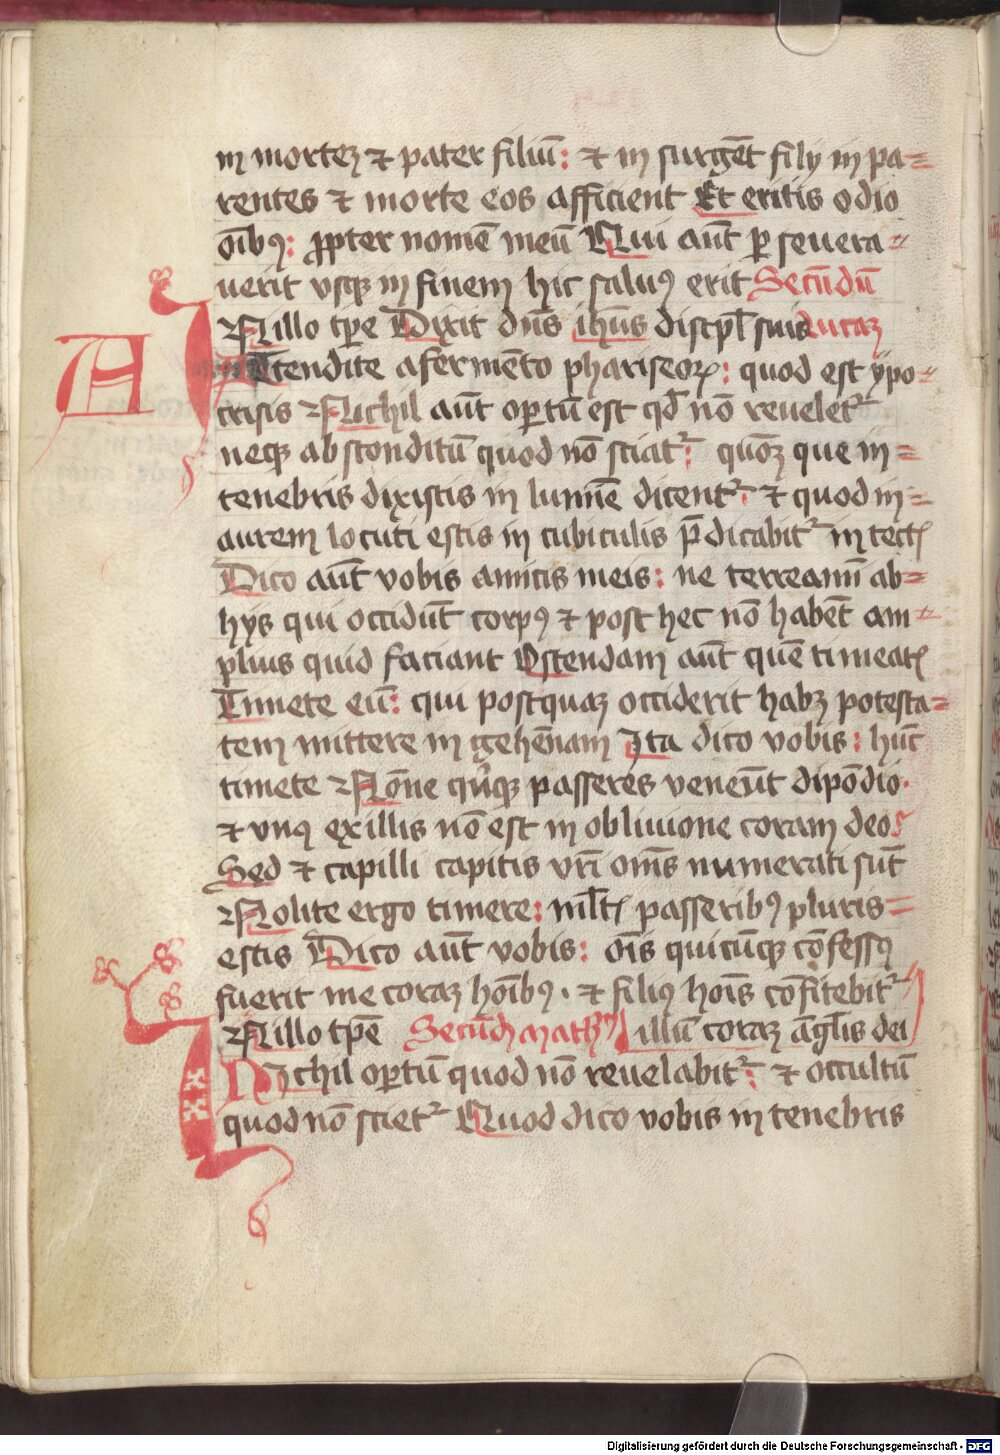 in mortez ⁊ pater filiū: ⁊ in surgēt filij in pa=
rentes ⁊ morte eos afficient Et eritis odio
oībꝯ: ꝓpter nomē meū Qui aūt ꝑseuera=
uerit vsqꝫ in finem hic saluꝯ erit Secūdū
In illo tp̄e Dixit dn̄s ihūs discipl̄ suis lucaz
A Attendite a fermēto phariseoꝝ: quod est ypo=
crisis Nichil aūt oꝑtū est qd̄ nō reueletᷣ
neqꝫ absconditū quod nō sciatᷣ: quoꝫ que in=
tenebris dixistis in lumīe dicentᷣ: ⁊ quod in=
aurem locuti estis in cubiculis p̄dicabitᷣ in tectꝭ
Dico aūt vobis amicis meis: ne terreamī ab=
hijs qui occidūt corpꝯ ⁊ post hec nō habēt am=
plius quid faciant Ostendam aūt quē timeatꝭ
Timete eū: qui postquaz occiderit habꝫ potesta=
tem mittere in gehēnam Ita dico vobis: hūc
timete Nōne qīnqꝫ passeres veneūt dipōdio.
⁊ vnꝯ ex illis nō est in obliuione coram deo
Sed ⁊ capilli capitis vrī om̄s numerati sūt
Nolite ergo timere: ml̄tꝭ passeribꝯ pluris=
estis Dico aūt vobis: oīs quicūqꝫ cōfessꝯ
fuerit me coraz hoībꝯ. ⁊ filiꝯ hoīs cōfitebitᷣ
In illo tp̄e Secūdū Matheū illū coraz āgl̄is dei
Nichil oꝑtū quod nō reuelabitᷣ: ⁊ occultū
quod nō scietᷣ Quod dico vobis in tenebris
Digitalisierung gefördert durch die Deutsche Forschungsgemeinschaft - DFG